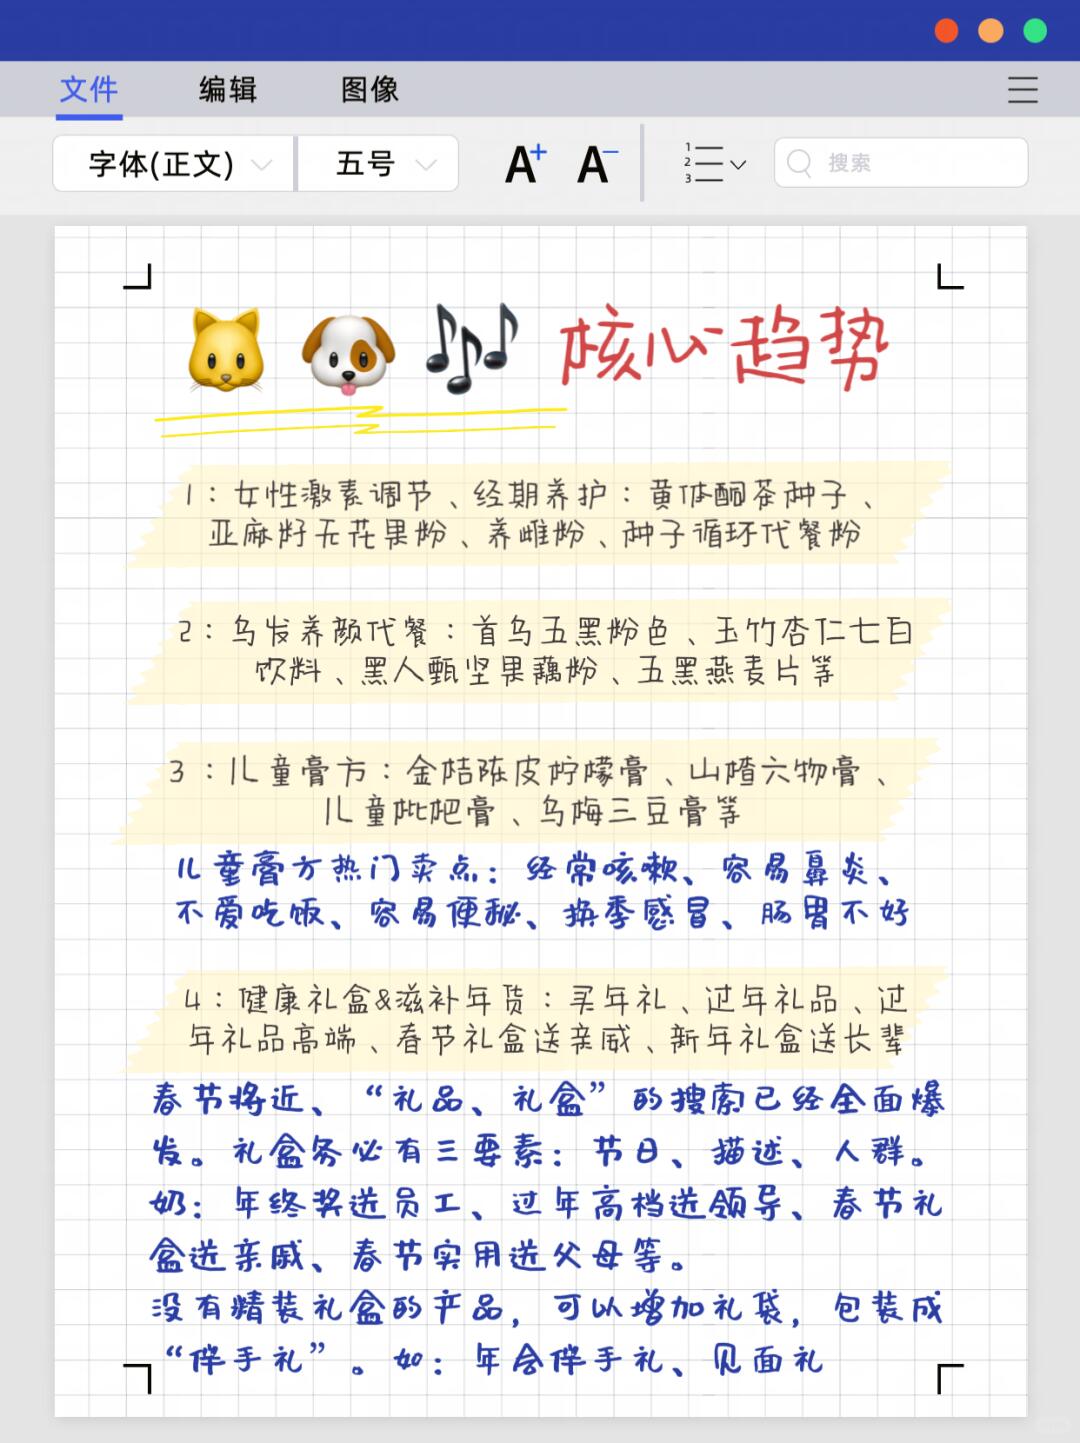 文件 编辑 图像
字体(正文) 五号 A+ A- 搜索
核心趋势
1：女性激素调节、经期养护：黄体酮茶种子、
亚麻籽无花果粉、养雌粉、种子循环代餐粉
2：乌发养颜代餐：首乌五黑粉色、玉竹杏仁七白
饮料、黑人甄坚果藕粉、五黑燕麦片等
3：儿童膏方：金桔陈皮柠檬膏、山楂六物膏、
儿童枇杷膏、乌梅三豆膏等
儿童膏方热门卖点：经常咳嗽、容易鼻炎、
不爱吃饭、容易便秘、换季感冒、肠胃不好
4：健康礼盒&滋补年货：买年礼、过年礼品、过
年礼品高端、春节礼盒送亲戚、新年礼盒送长辈
春节将近、“礼品、礼盒”的搜索已经全面爆
发。礼盒务必有三要素：节日、描述、人群。
奶：年终奖送员工、过年高档送领导、春节礼
盒送亲戚、春节实用送父母等。
没有精装礼盒的产品，可以增加礼袋，包装成
“伴手礼”。如：年会伴手礼、见面礼